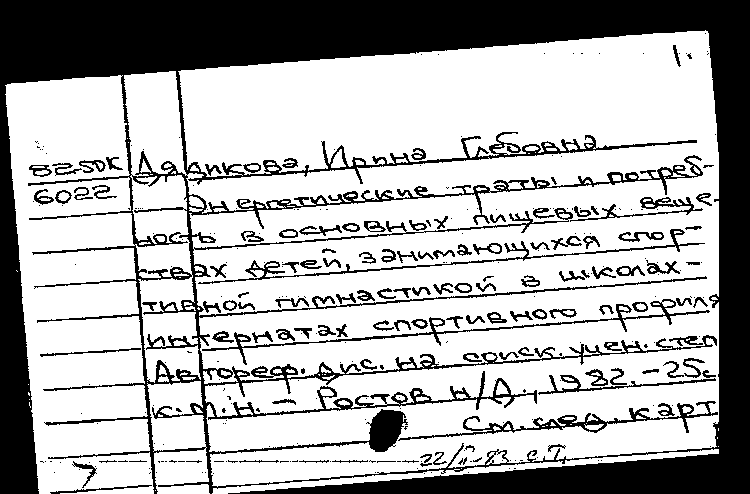 1.
82.5DK Дядикова, Ирина Глебовна.
6022 Энергетические траты и потреб-
ность в основных пищевых веще-
ствах детей, занимающихся спор-
тивной гимнастикой в школах-
интернатах спортивного профиля
Автореф. дис. на соиск. учен. степ
к.м.н. - Ростов н/Д., 1982. - 25с.
См. след. карт
22/II-83 с.Т.